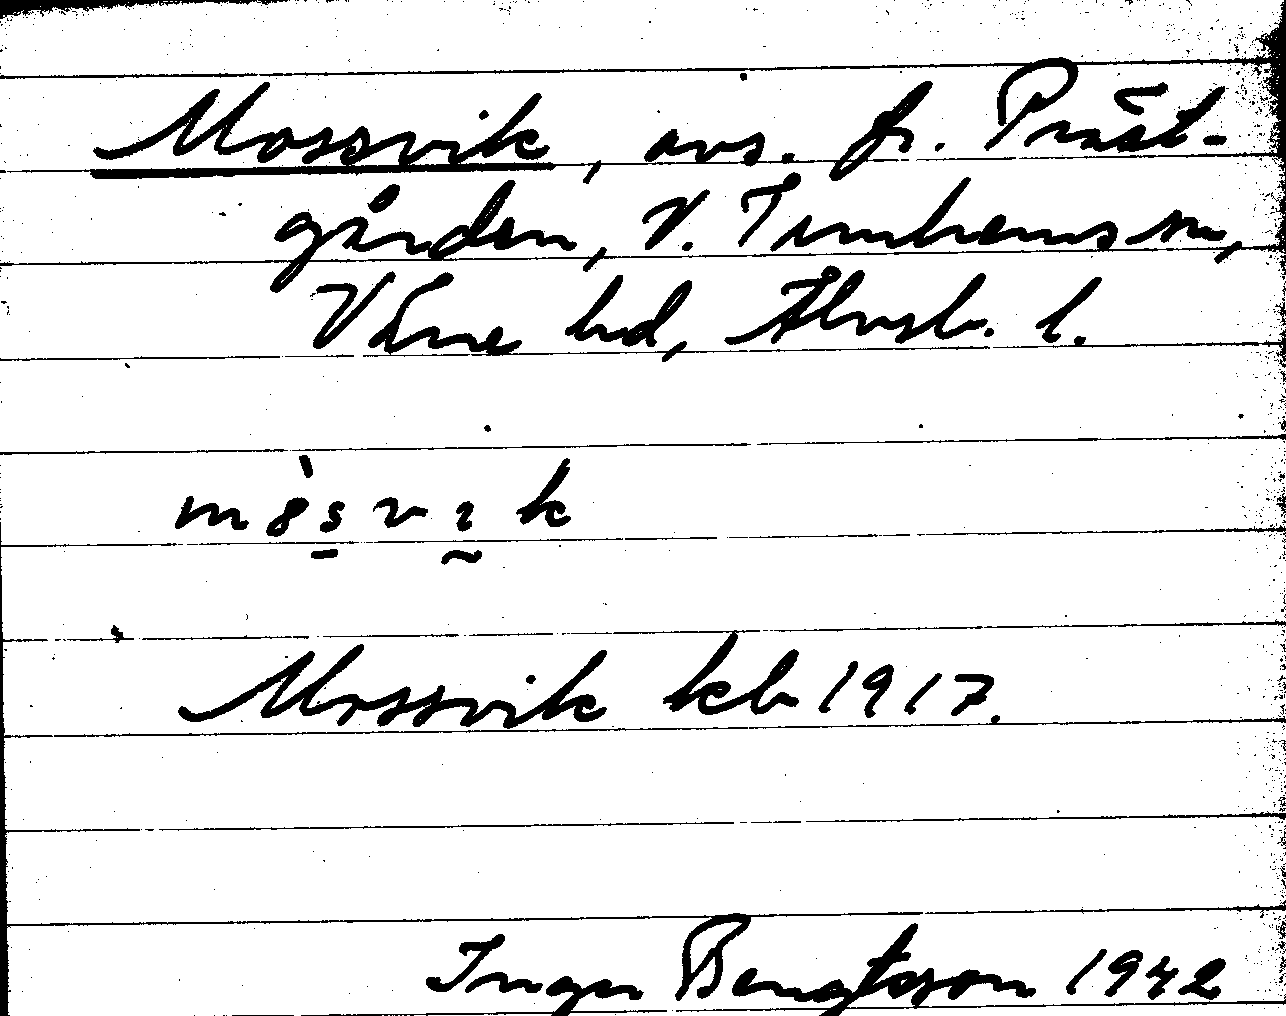 Mossvik, avs. fr. Präst-
gården, V. Tunhems sn,
Väne hd, Älvsb. l.
Mossvik kb 1917.
Inger Bengtsson 1942